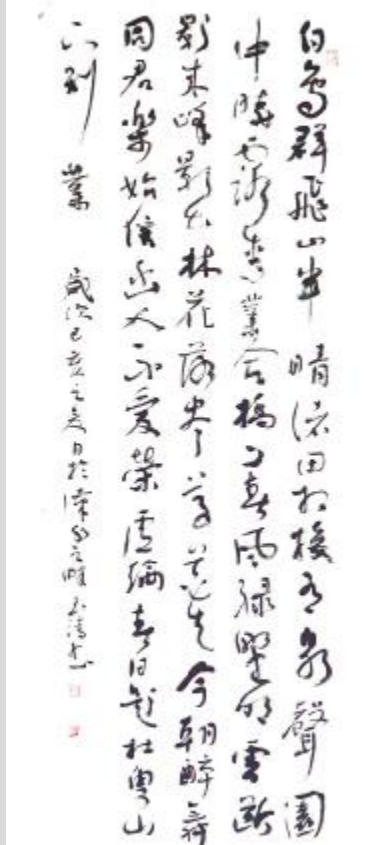 白鳥群飛山半晴渚田相接有泉聲園
中曉露青叢合橋上春風綠野明雲斷
影來峰影出林花落盡草花生今朝醉舞
同君樂始信幽人不愛榮盧綸春日題杜叟山
下別業 歲次己亥之夏日於漢水之畔